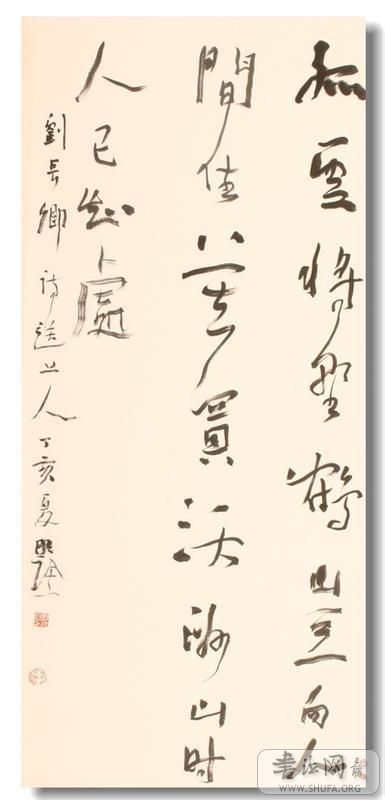 孤雲將野鶴豈向人
間住莫買沃洲山時
人已知處
劉長卿詩送上人丁亥夏
書法网
WWW.SHUFA.ORG